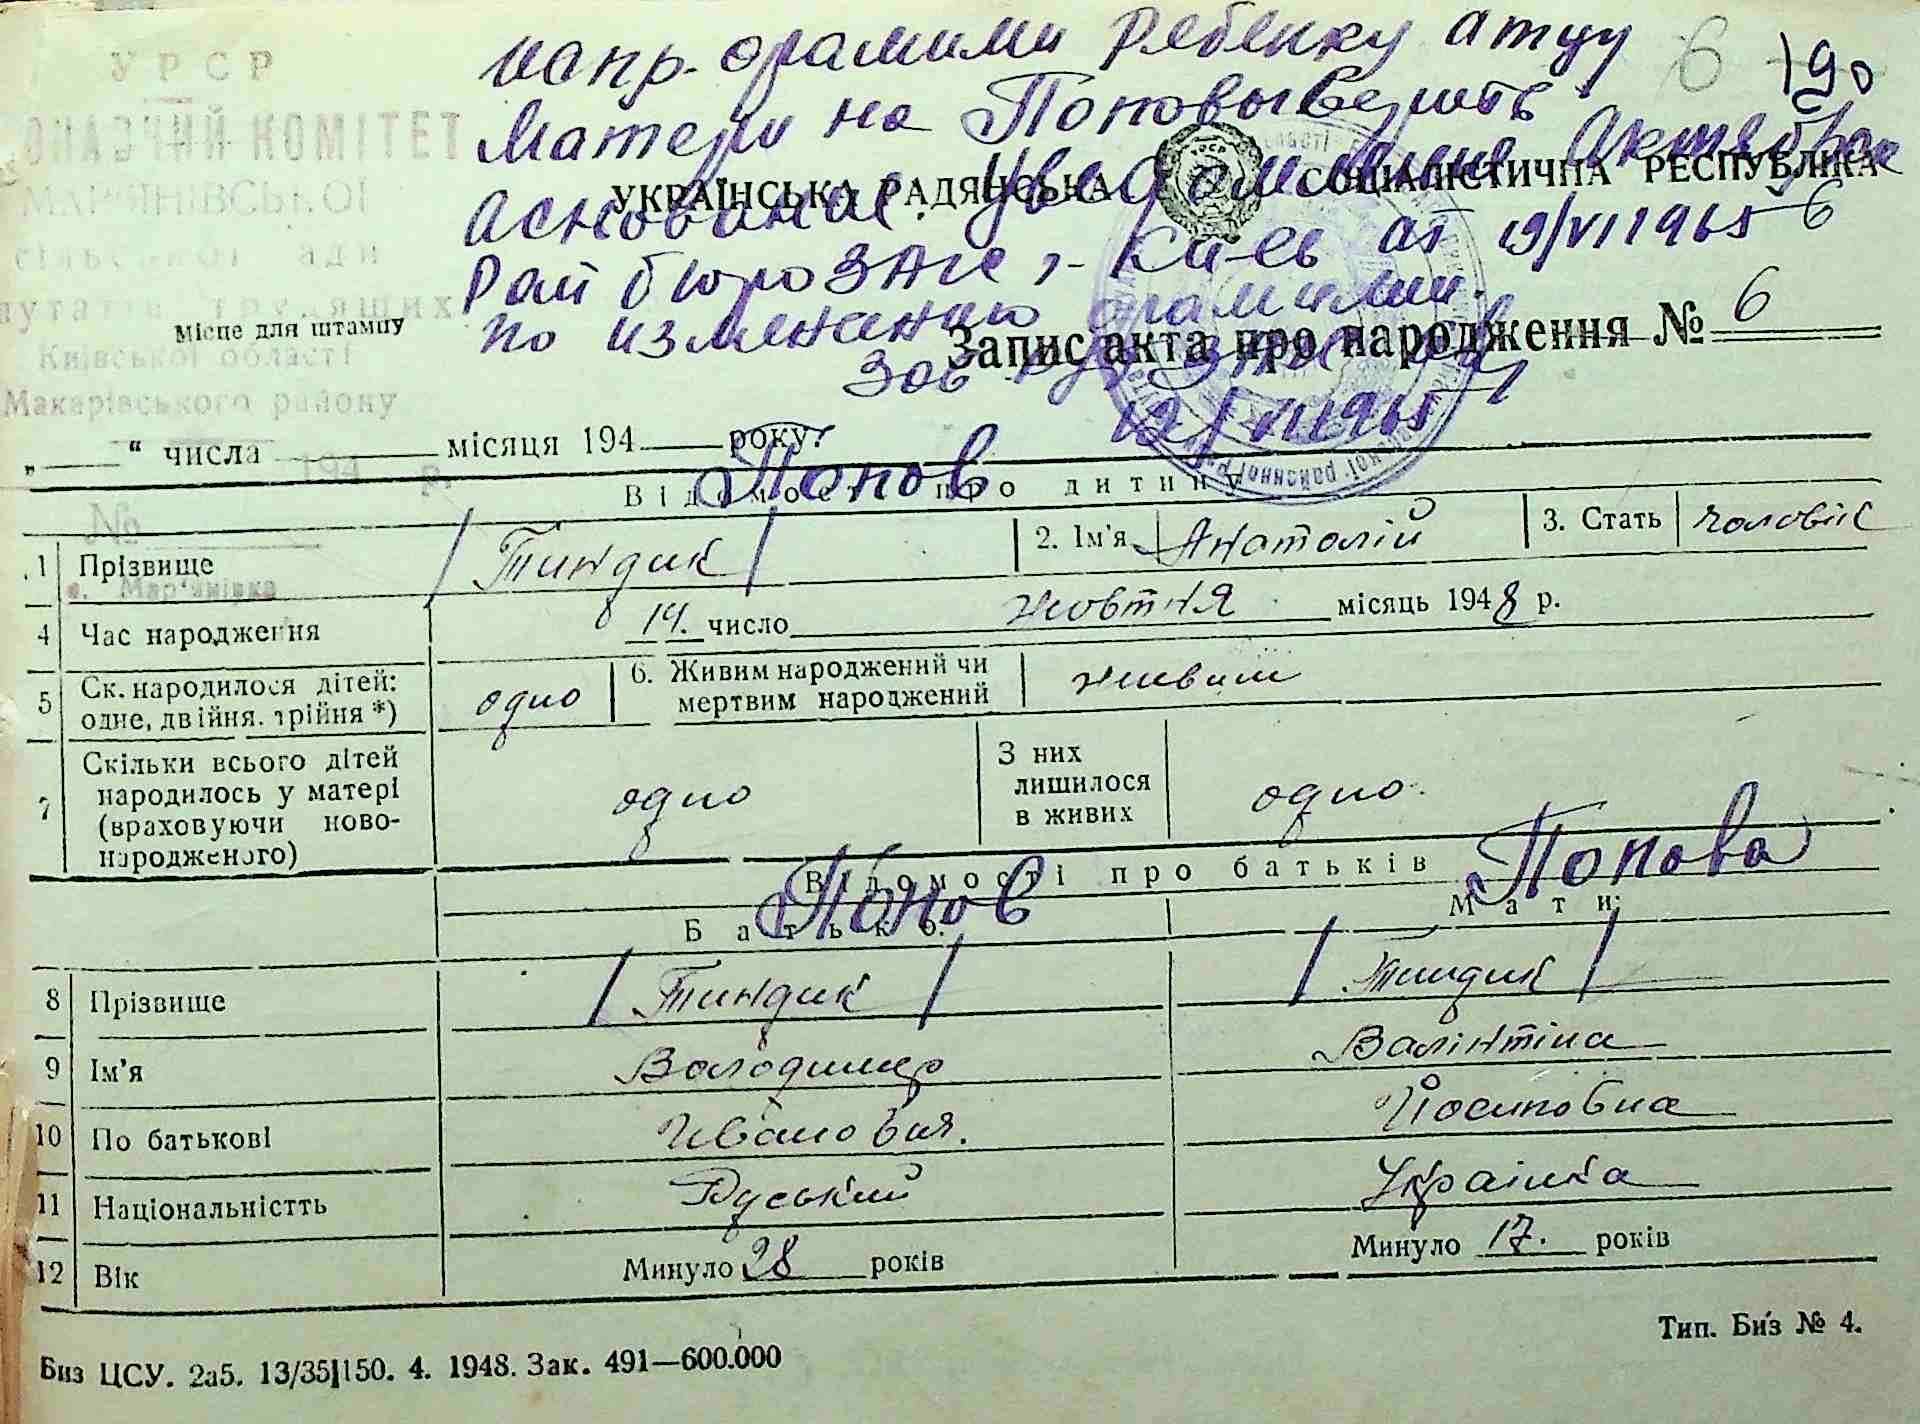 УРСР
КОМІТЕТ
МАР'ЯНІВСЬКОЇ
сільської ради
депутатів трудящих
Київської області
Макарівського району
194 р.
№
с. Мар'янівка
Місце для штампу
6 190
испр. фамилии ребенку атцу
Матери на Поповы
Аснование Актябрск
Рай бюро ЗАГС г. Киев ат 19/VI 1965
по изменению фамилии.
Зав
19/VI 1965
УКРАЇНСЬКА РАДЯНСЬКА СОЦІАЛІСТИЧНА РЕСПУБЛІКА
Запис акта про народження № 6
„ “ числа місяця 194 року.
Попов
Відомості про дитину
1 Прізвище Тиндик 2. Ім'я Анатолій 3. Стать чоловік
4 Час народження 14. число жовтня місяць 1948 р.
5 Ск. народилося дітей: одне, двійня, трійня *) одно 6. Живим народжений чи мертвим народжений живим
7 Скільки всього дітей народилось у матері (враховуючи новонародженого) одно З них лишилося в живих одно.
Відомості про батьків
Попов Попова
Батько: Мати:
8 Прізвище Тиндик Тиндик
9 Ім'я Володимир Валінтіна
10 По батькові Ивановия. Йосиповна
11 Національністть Руський Українка
12 Вік Минуло 28 років Минуло 17. років
Биз ЦСУ. 2а5. 13/35|150. 4. 1948. Зак. 491—600.000
Тип. Биз № 4.